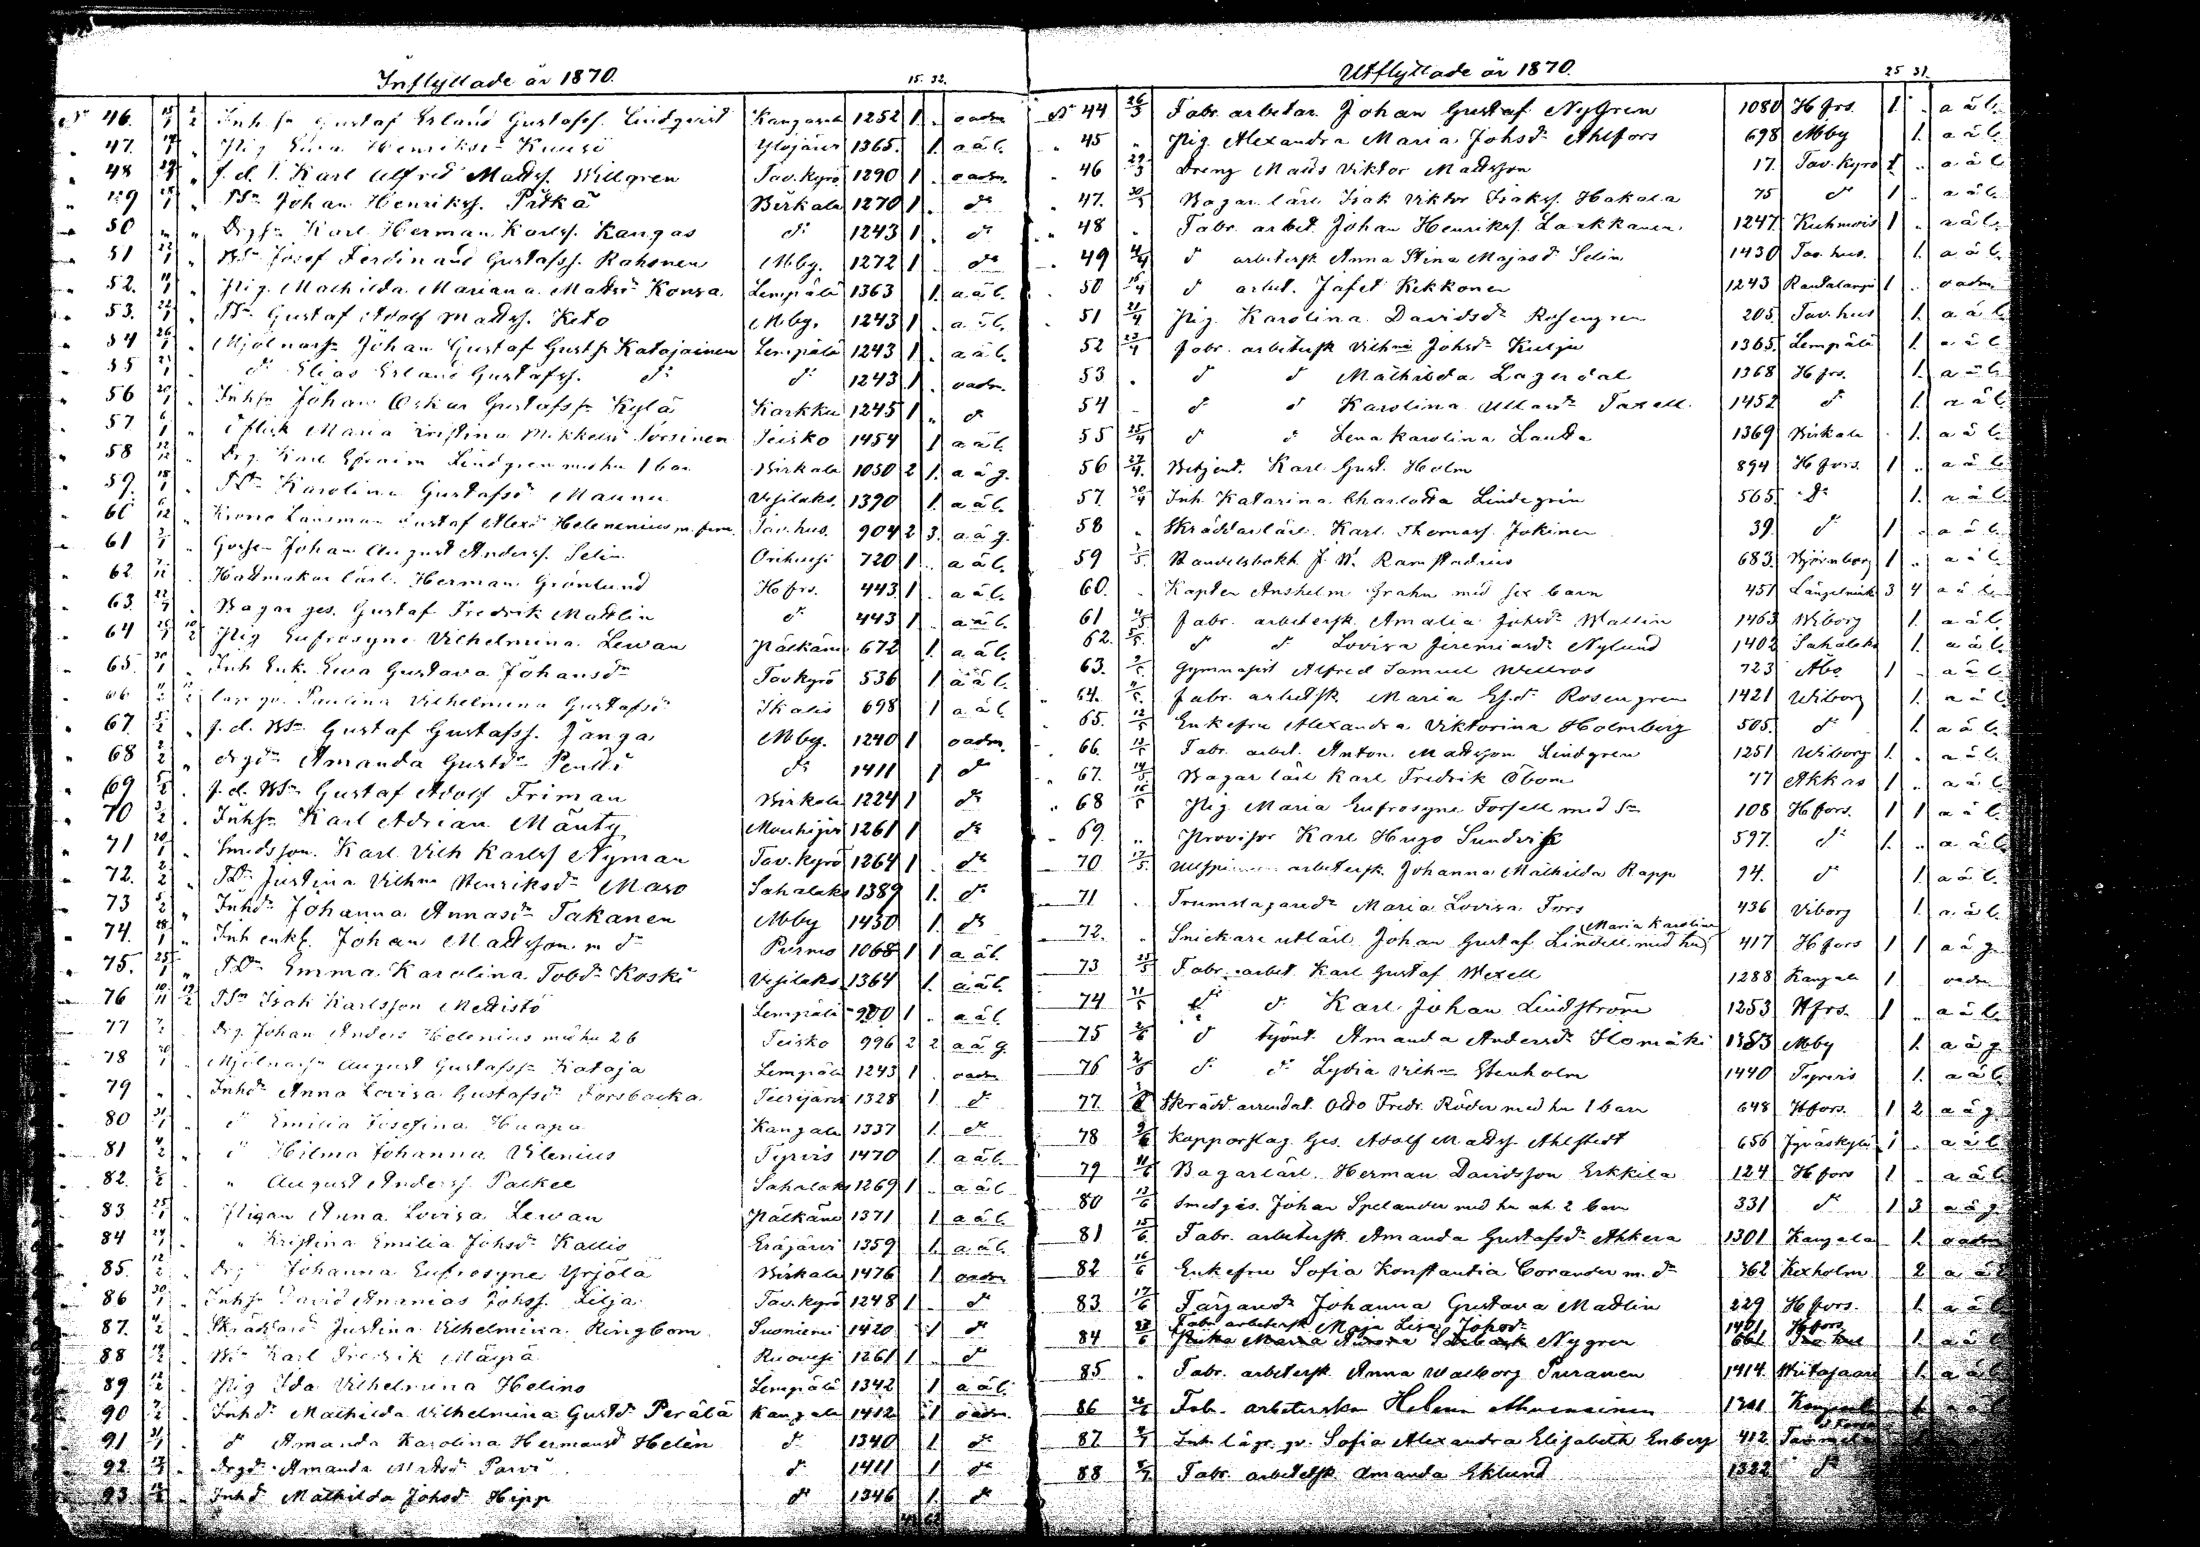 Inflyttade år 1870. 15. 32.
No 46. 15/1 2/2 Inhsn Gustaf Erland Gustafss. Lindqvist Kangasala 1252 1 . oadm.
47. Pig Eva Henriksdr Kuusi Ylöjärvi 1365. 1. a ä l.
48 f.d. S. Karl Alfred Matts. Willgren Tav.kyrö 1290 1 . oadm.
49 Tsn Johan Henrikss. Pätkä Birkala 1270 1 . do
50 " " Drgsn Karl Herman Karlss. Kangas do 1243 1 . do
51 Bsn Josef Ferdinand Gustafss. Rahonen Mby. 1272 1 do
52. Pig. Mathilda Mariana Mattsdr Konsa Lempälä 1363 1. a ä l.
53. Tsn Gustaf Adolf Mattss. Keto Mby. 1243 1 . a ä l.
54 26/1 Mjölnarsn Johan Gustaf Gustfs Katajainen Lempälä 1243 1 . a ä l.
55 do Elias Erland Gustafss. do do 1243 1 . oadm.
56 20/1 Inhsn Johan Oskar Gustafssn Kylä Karkku 1245 1 " do
57 6/1 Maria Kristina Mikkelsd Torsinen Teisko 1454 1 a ä l.
58 12/12 Drg. Karl Efraim Lindgren med hu 1 barn Birkala 1050 2 1. a ä g.
59. Tdr Karolina Gustafsd Maunu Vesilaks. 1390 1. a ä l.
60 Krono Länsman Gustaf Alexd Helenenius m. fam. Tav.hus. 904 2 3. a ä g.
61 Johan August Anderss. Selin Orihvesi 720 1 . a ä l.
62 Hattmakar lärl. Herman Grönlund Hfrs. 443 1 . a ä l.
63. Bagar ges. Gustaf Fredrik Mattlin do 443 1 . a ä l.
64 Pig Eufrosyne Vilhelmina Lewan Pälkäne 672 1. a ä l.
65. Inh Enk. Ewa Gustava Johansdr Tavkyrö 536 1 a ä l.
66 Paulina Vilhelmina Gustafsd Ikalis 698 1 a ä l.
67 f.d. Bsn Gustaf Gustafss. Jänga Mby. 1240 1 oadm.
68 Drgdr Amanda Gustdr Pentti do 1411 1 do
69 f.d. Bsn Gustaf Adolf Friman Birkala 1224 1 do
70 Inhsn Karl Adrian Mänty Mouhijär 1261 1 do
71 Smedsson. Karl Vilh Karlss Nyman Tav.kyrö 1264 1 do
72. Tdr Justina Vilhna Henriksdr Maso Sahalaks 1389 1. do
73 Inhdr Johanna Annasdr Takanen Mby 1430 1. do
74. Inh enkl. Johan Mattsson m dr Purmo 1068 1 1 a ä l.
75. 25/1 Tdr Emma Karolina Tobdr Koski Vesilaks 1364 1. a ä l.
76 Tsn Isak Karlsson Mettistö Lempälä 900 1 . a ä l.
77 Drg. Johan Anders Helenius med hu 2 b Teisko 996 2 2 a ä g.
78 Mjölnarsn August Gustafssn Kataja Lempälä 1243 1 . oadm
79 Inhdr Anna Lovisa Gustafsdr Forsbacka Teerijärvi 1328 1 do
80 31/1 do Emilia Josefina Haapa Kangala 1337 1. do
81 do Hilma Johanna Vilenius Tyrvis 1470 1. a ä l.
82. " August Anderss. Palkee Sahalaks 1269 1 . a ä l
83 25/1 Pigan Anna Lovisa Lewan Pälkäne 1371 1 a ä l.
84 " Kristina Emilia Johsdr Kallio Eräjärvi 1359 1. a ä l.
85. Drg Johanna Eufrosyne Yrjölä Birkala 1476 1 oadm
86 30/1 Inhsn David Ananias Johss. Lilja Tav.kyrö 1248 1 . do
87. Skräddard Justina Vilhelmina Ringbom Suoniemi 1420 1 do
88 Bsn Karl Fredrik Mäspä Ruovesi 1261 1 . do
89 Pig Ida Vilhelmina Helino Lempälä 1342 1 a ä l
90 Inhdr Mathilda Vilhelmina Gustdr Perälä Kangala 1412 1 oadm.
91 31/1 do Amanda Karolina Hermansd Helén do 1340 1 do
92 Drgdr Amanda Mattsd Parvi do 1411 1 do
93 Inhd Mathilda Johsdr Hipp do 1346 1. do
Utflyttade år 1870. 25 31.
No 44 26/3 Fabr. arbetar. Johan Gustaf Nygren 1080 Hfrs. 1. . a ä l.
45 " Pig. Alexandra Maria Johsdr Ahlfors 698 Mby 1. a ä l.
46 29/3 Dreng Matts Viktor Mattsson 17. Tav.kyrö 1 . a ä l
47. 30/3 Bagar lärl Isak Viktor Isakss. Hakala 75 do 1 . a ä l
48 " Fabr. arbet. Johan Henrikss. Laukkanen 1247 Kuhmois 1 . a ä l.
49 4/4 do arbetersk Anna Stina Majasd Selin 1430 Tav. hus. 1. a ä l
50 15/4 do arbet. Jafet Kekkonen 1243 Rautalampi 1 . oadm.
51 21/4 Pig. Karolina Davidsdr Rosengren 205. Tav.hus 1. a ä l.
52 22/4 fabr. arbetersk Vilhna Johsdr Kulju 1365. Lempälä 1. a ä l
53 " do do Mathilda Lagerdal 1368 Hfrs. 1. a ä l.
54 do do Karolina Ullasdr Taxell. 1452 do 1. a ä l.
55 25/4 do do Lena Karolina Lauda 1369 Birkala 1. a ä l.
56 27/4 Betjent. Karl Gust. Holm 894 Hfors. 1 . a ä l.
57. 30/4 Inh. Katarina Charlotta Lindegrén 565. do 1. a ä l.
58 " Skräddarlärl. Karl Thomass. Jokinen 39. do 1 . a ä l.
59 3/5 Handelsbokh. J. W. Ramstadius 683. Björneborg 1 . a ä l.
60. " Kapten Anshelm Grahn med sex barn 451 Längelmäk 3 4 a ä l.
61 4/5 fabr. arbetersk Amalia Johsdr Wallin 1463 Wiborg 1. a ä l.
62. 5/5 do do Lovisa Jeremiasdr Nylund 1402 Sahalaks 1. a ä l.
63. Gymnasist Alfred Samuel Wellroos 723 Åbo 1 . a ä l.
64. fabr. arbetsk Maria Gf.dr Rosengren 1421 Wiborg 1. a ä l
65. 12/5 Enkefru Alexandra Viktorina Holmberg 505. do 1. a ä l.
66. 13/5 Fabr. arbet. Anton Mattsson Lindgren 1251 Wiborg 1. . a ä l.
67. 14/5 Bagar lärl Karl Fredrik Öbom 77 Akkas 1 . a ä l.
68 16/5 Pig. Maria Eufrosyne Forsell med Sn 108 Hfors. 1 1 a ä l.
69. " Provisor Karl Hugo Sundvik 597. do 1. . a ä l
70 17/5 arbetersk. Johanna Mathilda Rapp 94. do 1. a ä l.
71 " Trumslagaredr Maria Lovisa Fors 436 Viborg 1. a ä l.
72. " Snickare utlärl. Johan Gustaf Lindell med hu Maria Karolina 417 Hfors 1 1 a ä g.
73 25/5 Fabr. arbet. Karl Gustaf Wexell 1288 Kangala 1 oadm
74 31/5 do do Karl Johan Lindström 1253 Hfrs. 1 . a ä l.
75 2/6 do tjent. Amanda Andersdr Ilomäki 1383 Mby 1. a ä g.
76 do do Lydia Vilhna Stenholm 1440 Tyrvis 1. a ä l
77. Skrädd. arrendat. Otto Fredr. Röder med hu 1 barn 648 Hfors. 1 2 a ä g
78 9/6 Kopparslag. Ges. Adolf Mattss. Ahlstedt 656 Jyväskylä 1 . a ä l
79 11/6 Bagarlärl. Herman Davidsson Erkkila 124 Hfors 1 . a ä l
80 13/6 Smedges. Johan Spelander med hu oh 2 barn 331 do 1 3 a ä g.
81 15/6 Fabr. arbetersk. Amanda Gustafsdr Ahkera 1301 Kangala 1. oadm
82 16/6 Enkefru Sofia Konstantia Corander m. dr 362 Kexholm 2 a ä l
83. 17/6 Färgaredr Johanna Gustava Matlin 229 Hfors. 1. a ä l
Fabr arbetersk Maja Lisa Johsdr 1401 Hfors
84 Nygren 1. a ä l
85 " Fabr. arbetersk. Anna Walborg Puranen 1414. Witasaari 1. a ä l
86 Fab. arbeterskan Helena Kangasala a ä l
87 Inh lägr. gv. Sofia Alexandra Elisabeth Enberg 412. Tammela
88 Fabr arbetersk Amanda Eklund 1322 do